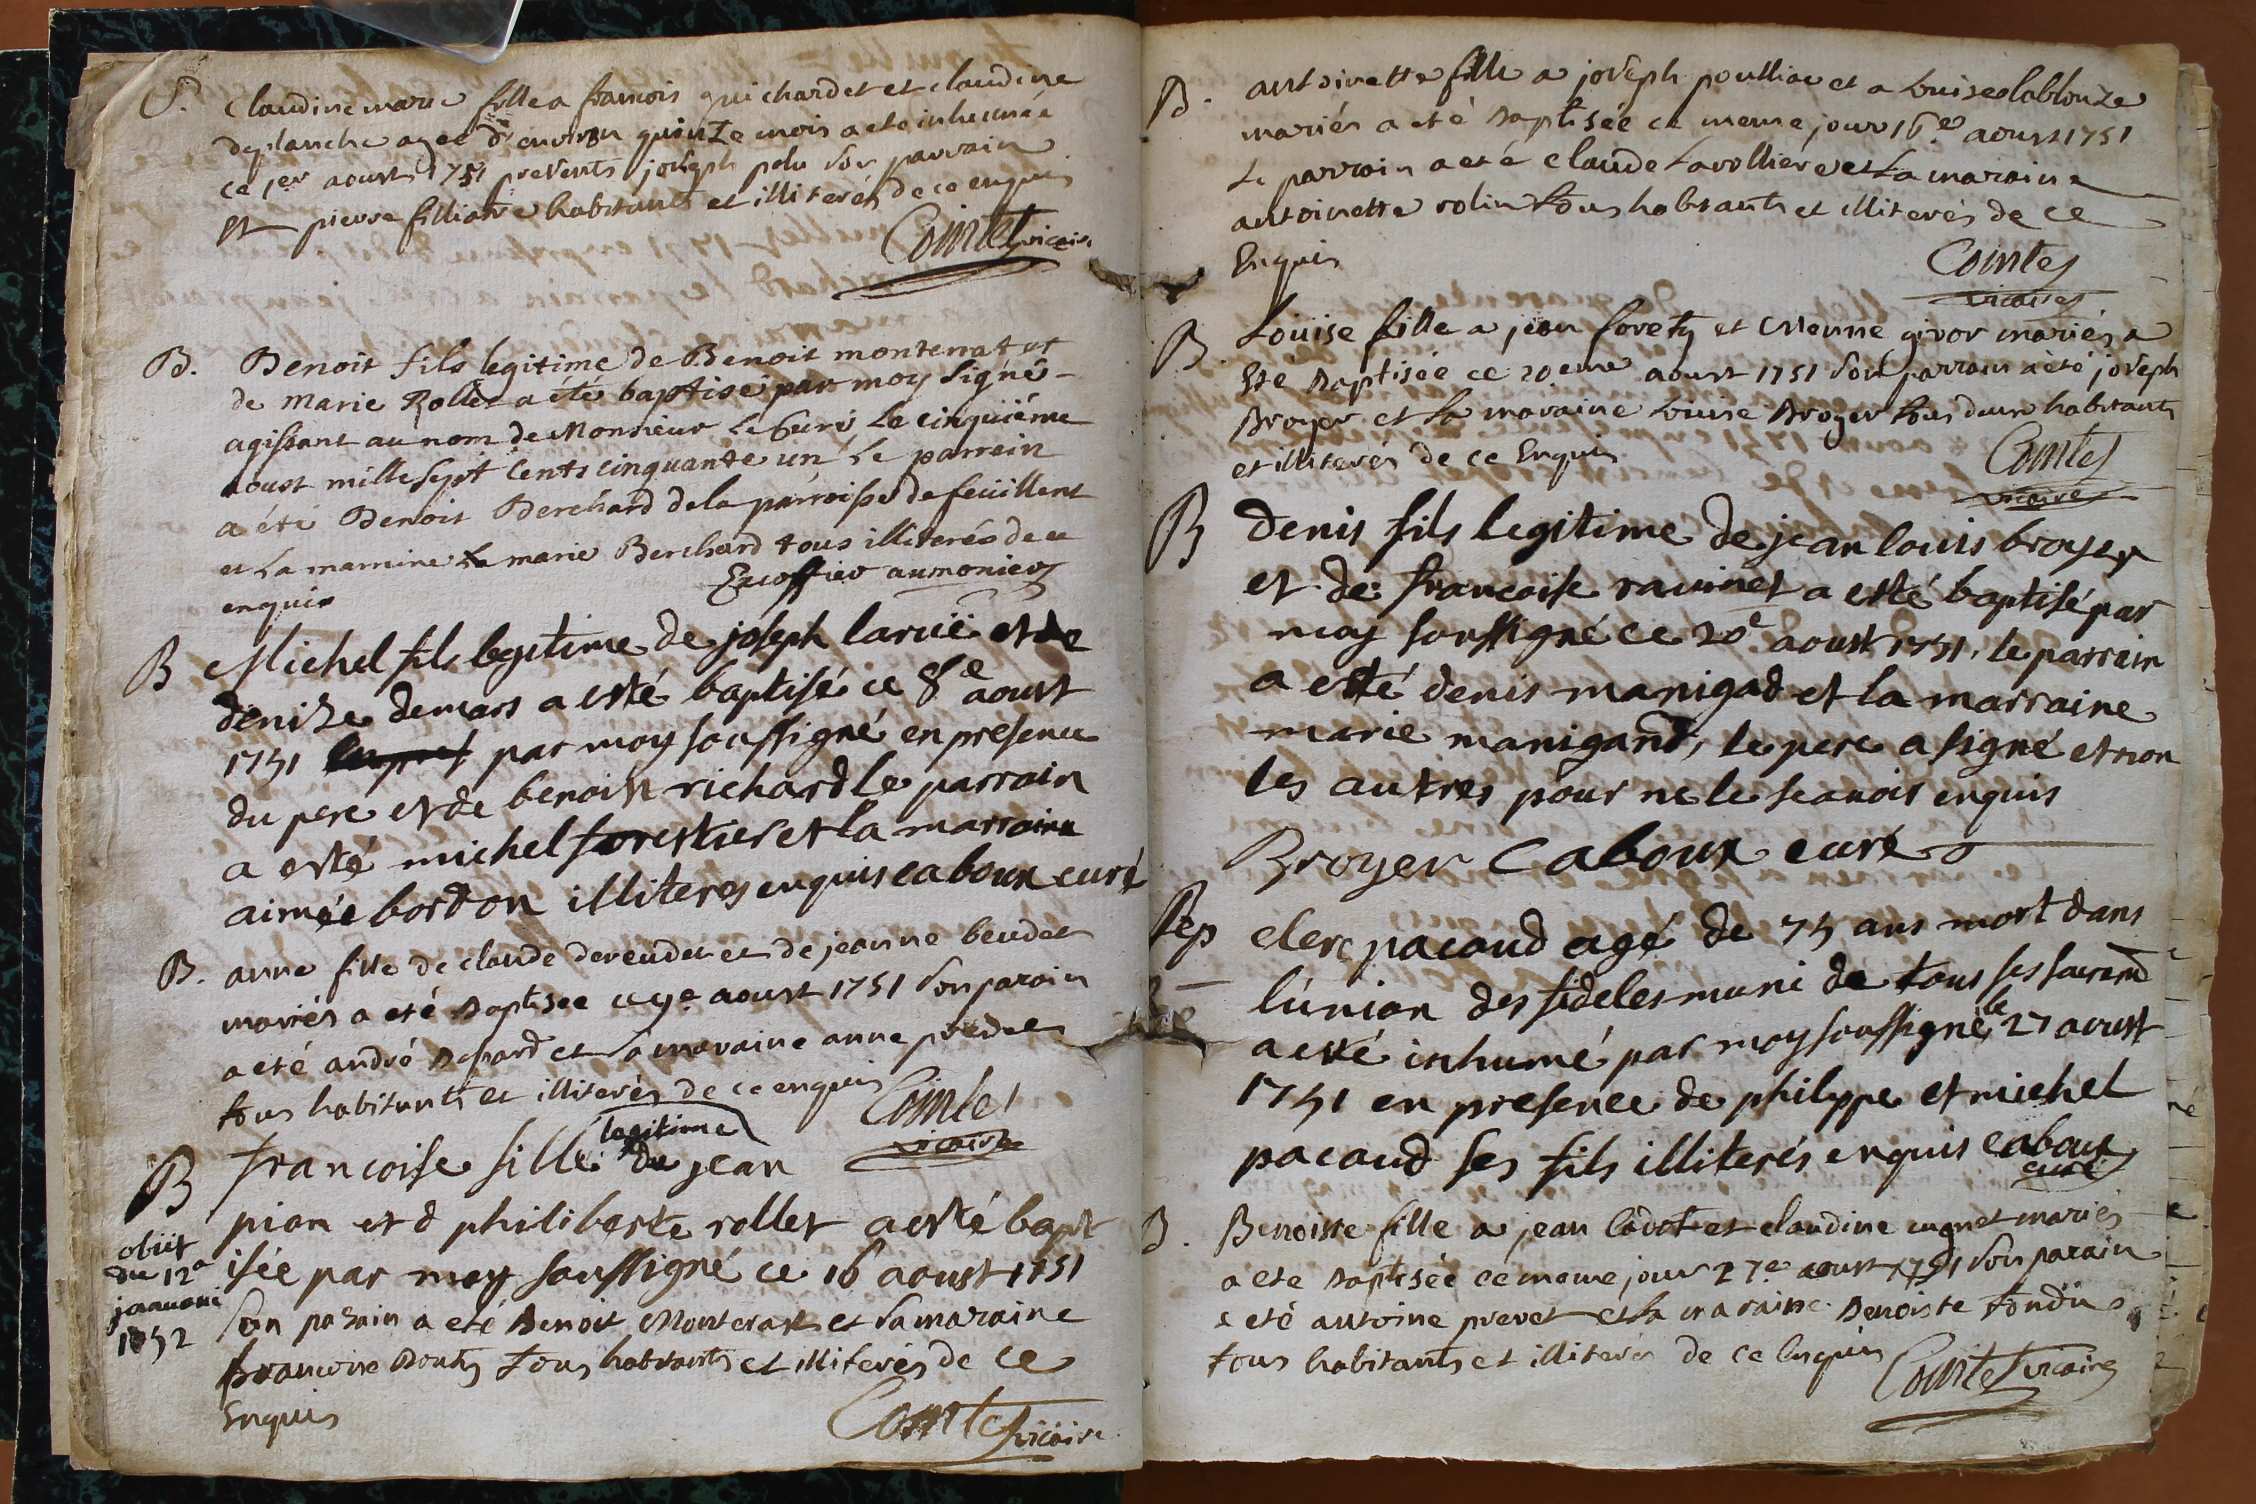 S. Claudine marie fille a francois guichardet et claudine
deplanche agee d'environ quinze mois a eté inhumée
ce 1er aoust 1751 presents joseph polu son parrain
et pierre filliatre habitants et illiterés de ce enquis
Comte vicaire
B. Benoit fils legitime de Benoit montenat et
de Marie Rollet a été baptisé par moy signé -
agissant au nom de Monsieur Le Curé Le cinquiéme
aoust mille sept cents cinquante un Le parrein
a été Benoit Berchard de la parroisse de feüillent
et La marrine La marie Berchard tous illiterés de ce
enquis Escoffier aumonier
B Michel fils legitime de joseph laruë et de
denize demars a esté baptisé ce 8e aoust
1751 par moy soussigné en presence
du pere et de benoist richard le parrain
a esté michel forestier et la marraine
aimée bordon illiteres enquis caboux curé
B. anne fille de claude dereudet et de jeanne beudet
mariés a eté baptisee ce 9e aoust 1751 son parain
a eté andré et la maraine anne
tous habitants et illiterés de ce enquis
Comte
vicaire
B francoise fille legitime de jean
pion et d philiberte rollet a esté bapt
isée par moy soussigné ce 16 aoust 1751
obiit
du 12a
januarii
1752
Son parain a eté Benoit Monterat et sa maraine
francoise Bouty tous habitants et illiterés de ce
Enquis
Comte vicaire
B. antoinette fille a joseph poulliac et a Louise lablonze
mariés a eté baptisée ce meme jour 16e aoust 1751
Le parrain a eté claude Lavolliere et La maraine
antoinette rolin tous habitants et illiterés de ce
Enquis
Comte
vicaire
B Louise fille a jean forety et etienne givor mariés a
Eté baptisée ce 20eme aoust 1751 son parrain a eté joseph
Broyer et la maraine Louise Broyer tous deux habitants
et illiterés de ce Enquis
Comte
vicaire
B denis fils legitime de jean louis broyer
et de francoise ravinet a esté baptisé par
moy soussigné ce 20e aoust 1751, le parrein
a esté denis manigad et la marraine
marie manigand, le pere a signé et non
les autres pour ne le scavoir enquis
Broyer Caboux curé
Sep clerc pacaud agé de 75 ans mort dans
l'union des fideles muni de tous ses sacremt
a esté inhumé par moy soussigné le 27 aoust
1751 en presence de philippe et michel
pacaud ses fils illiterés enquis caboux
curé
B. Benoiste fille a jean Cadot et claudine cugnet mariés
a ete baptisée ce meme jour 27e aoust 1751 son parain
a eté antoine prevet et la maraine Benoiste tondu
tous habitants et illiterés de ce Enquis
Comte vicaire